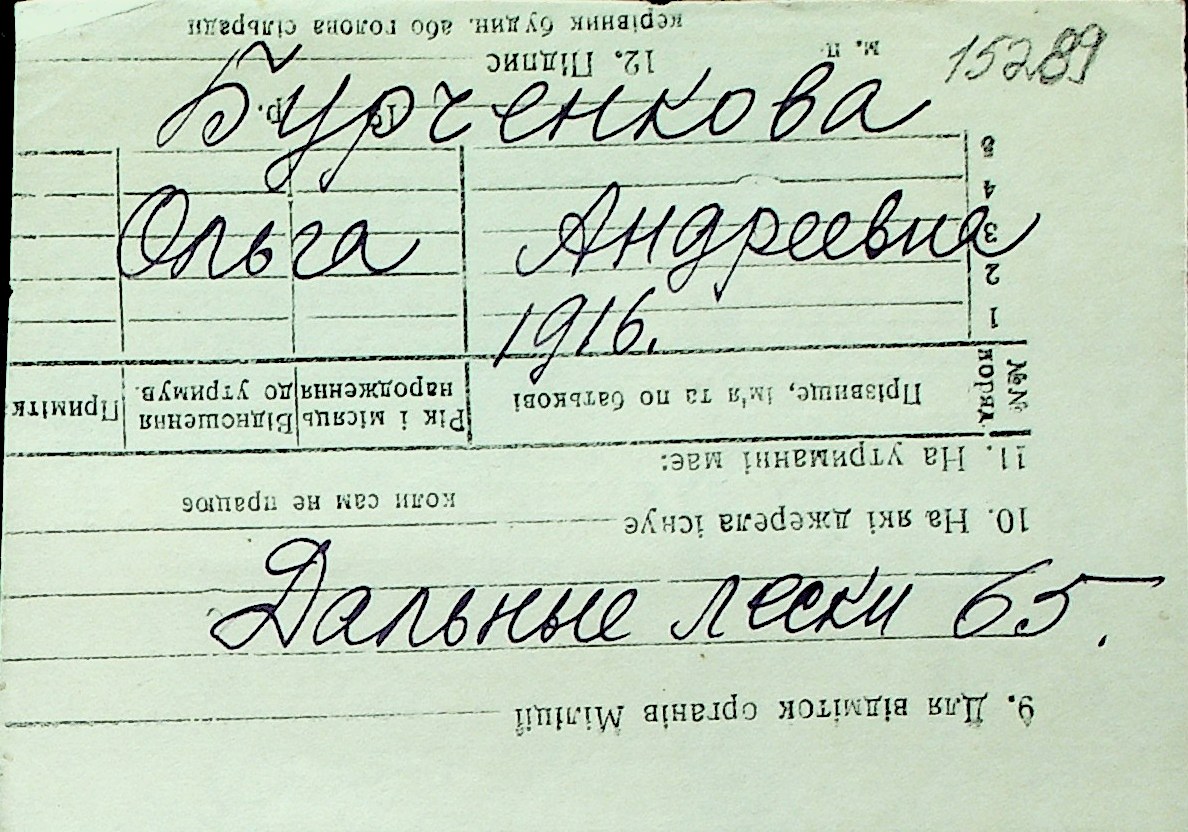 керівник будин. або голова сільради
12. Підпис м. п.
15289
Бурченкова
19 р.
5
4
Ольга Андреевна
3
2
1916.
1
№№ поряд. Прізвище, ім'я та по батькові Рік і місяць народження Відношення до утримув. Примітка
11. На утриманні має:
коли сам не працює
10. На які джерела існує
Дальные лески 65.
9. Для відміток органів Міліції